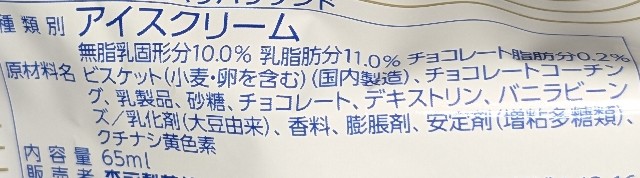 種類別 アイスクリーム
無脂乳固形分10.0% 乳脂肪分11.0% チョコレート脂肪分0.2%
原材料名 ビスケット(小麦・卵を含む)(国内製造)、チョコレートコーチン
グ、乳製品、砂糖、チョコレート、デキストリン、バニラビーン
ズ/乳化剤(大豆由来)、香料、膨脹剤、安定剤(増粘多糖類)、
クチナシ黄色素
内容量 65ml
販売者